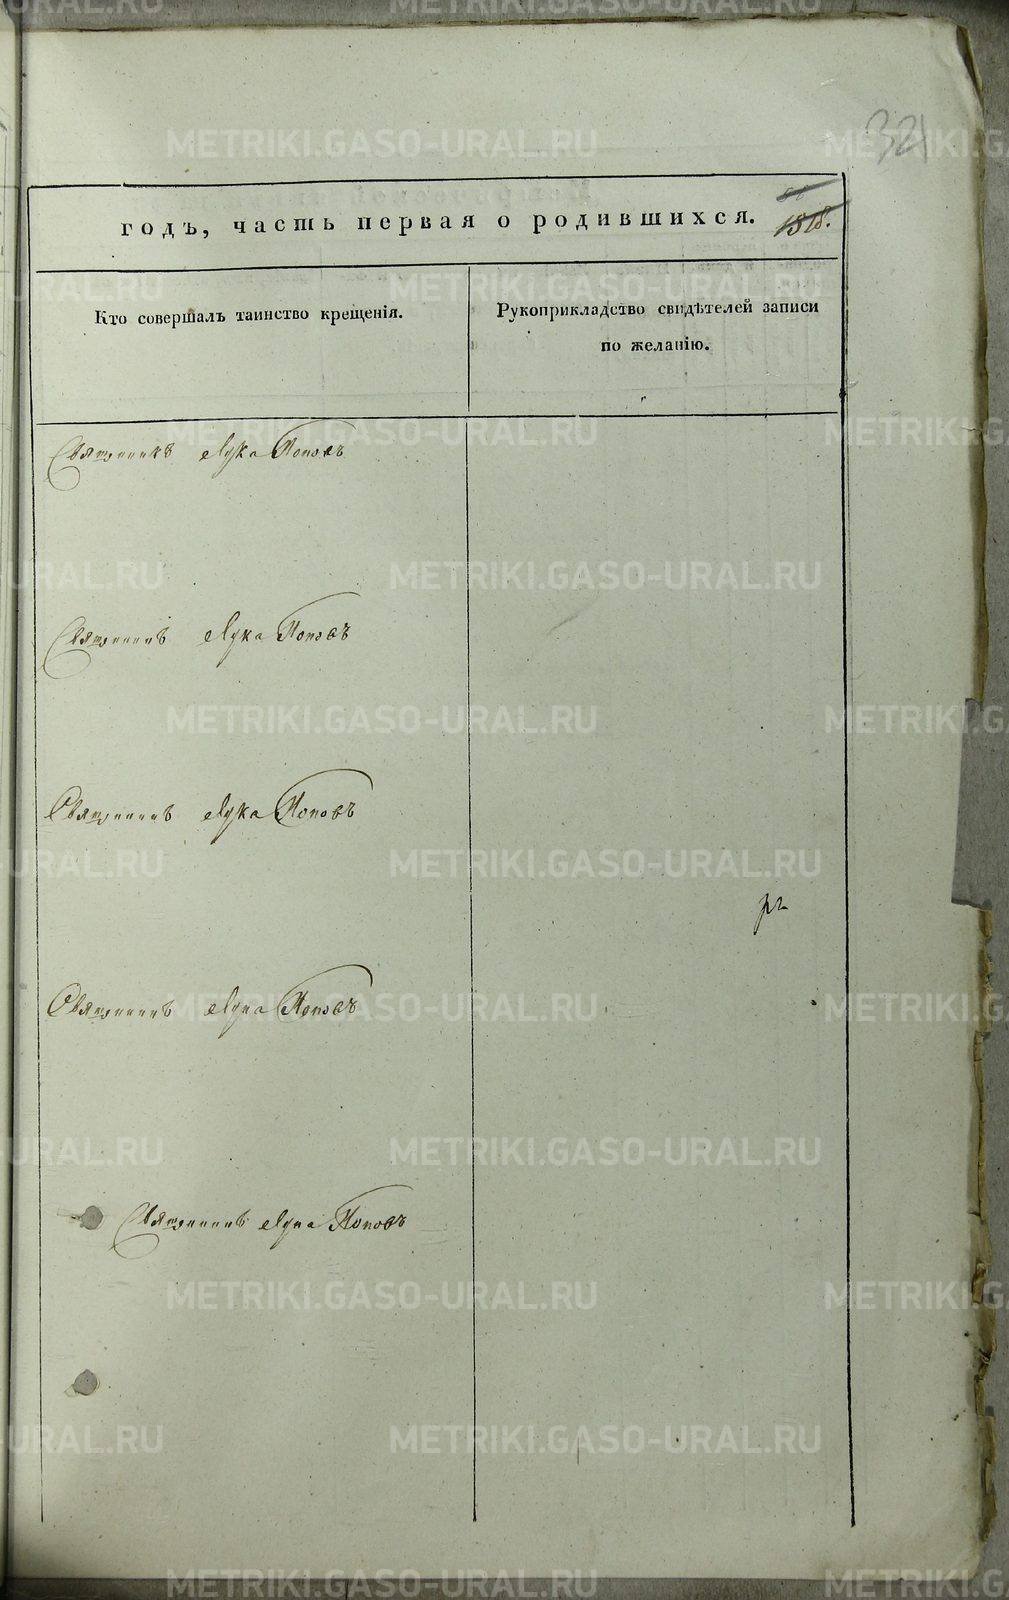 METRIKI.GASO-URAL.RU
321
годъ, часть первая о родившихся.
Кто совершалъ таинство крещенія.
Рукоприкладство свидѣтелей записи
по желанію.
Священникъ Лука Поповъ
Священникъ Лука Поповъ
Священникъ Лука Поповъ
Священникъ Лука Поповъ
Священникъ Лука Поповъ